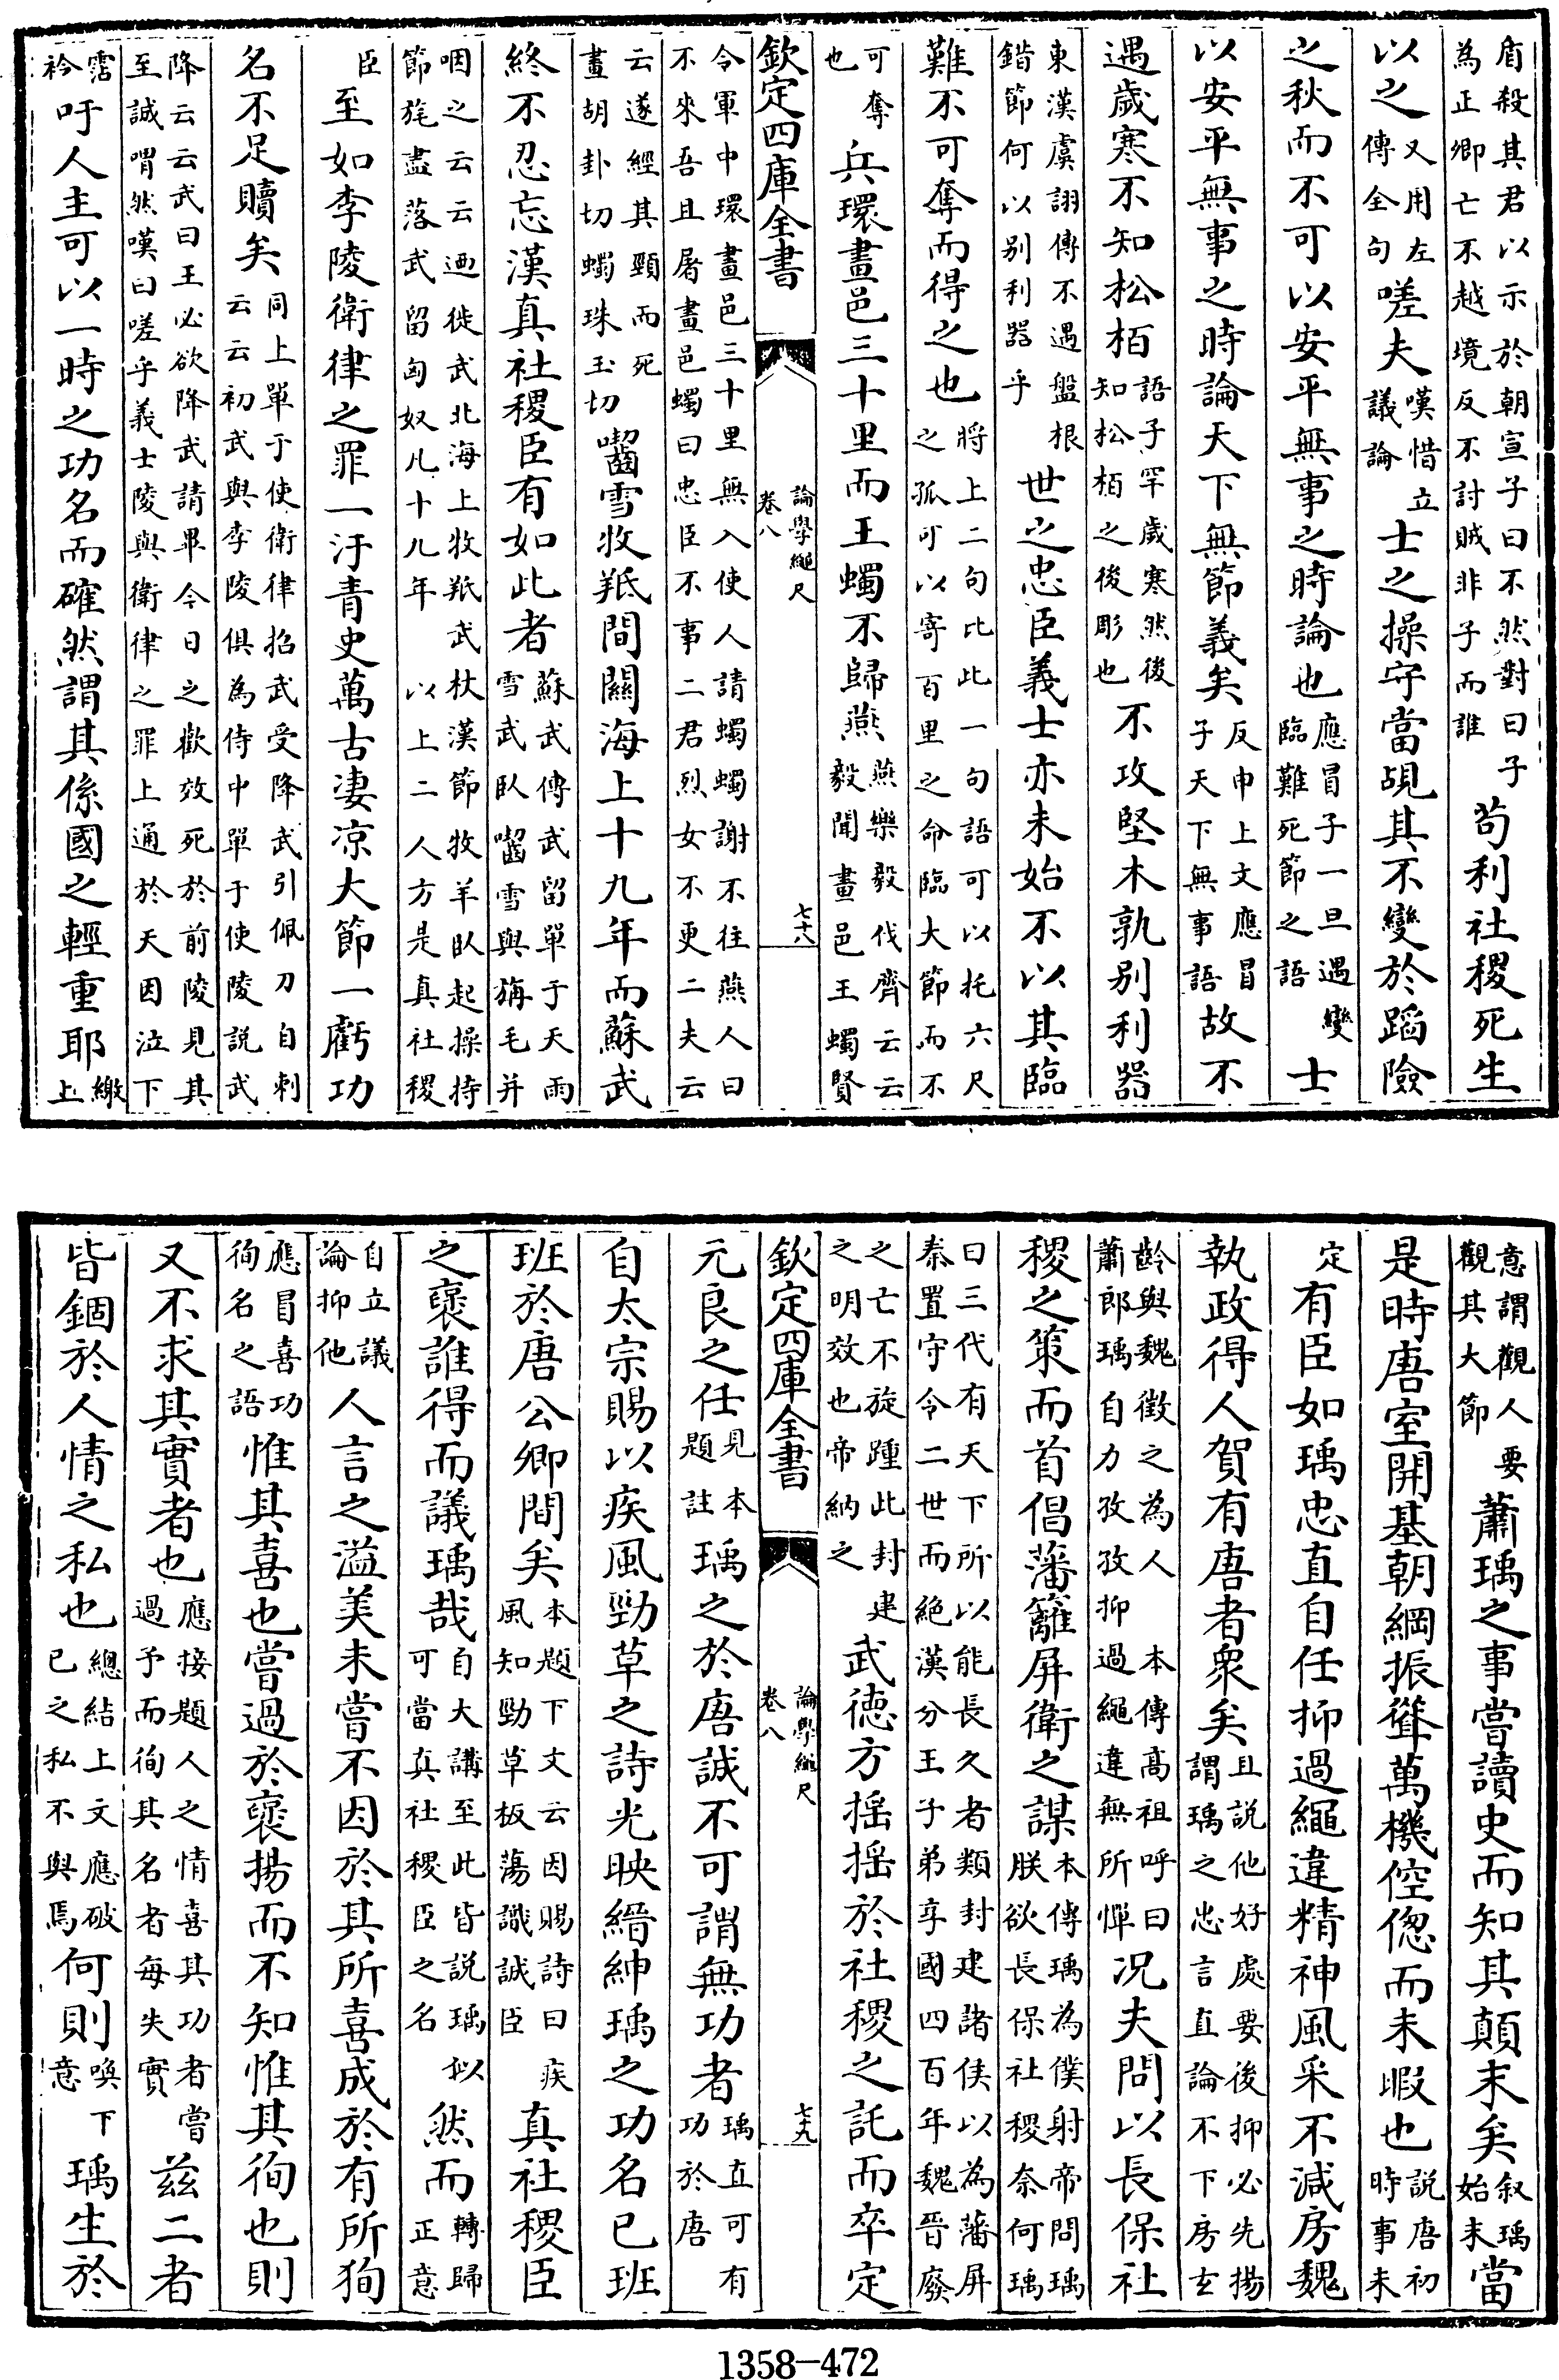 盾殺其君以示於朝宣子曰不然對曰子為正卿亡不越境反不討賊非子而誰苟利社稷死生
以之又用左傳全句嗟夫嘆惜立議論士之操守當覘其不變於蹈險
之秋而不可以安平無事之時論也應冒子一旦遇變臨難死節之語士
以安平無事之時論天下無節義矣反申上文應冒子天下無事語故不
遇歲寒不知松栢語子罕歲寒然後知松栢之後彫也不攻堅木孰别利器
東漢虞詡傳不遇盤根錯節何以别利器乎世之忠臣義士亦未始不以其臨
難不可奪而得之也將上二句比此一句語可以托六尺之孤可以寄百里之命臨大節而不
可奪也兵環畫邑三十里而王蠋不歸燕燕樂毅伐齊云云毅聞畫邑王蠋賢
欽定四庫全書 論學繩尺 卷八 七十八
令軍中環畫邑三十里無入使人請蠋蠋謝不往燕人曰不來吾且屠畫邑蠋曰忠臣不事二君烈女不更二夫云
云遂經其頸而死畫胡卦切蠋珠玉切嚙雪牧羝間關海上十九年而蘇武
終不忍忘漢真社稷臣有如此者蘇武傳武留單于天雨雪武臥嚙雪與旃毛并
咽之云云廼徙武北海上牧羝武杖漢節牧羊臥起操持節旄盡落武留匈奴凡十九年以上二人方是真社稷
臣至如李陵衛律之罪一汙青史萬古凄凉大節一虧功
名不足贖矣同上單于使衛律招武受降武引佩刀自刺云云初武與李陵俱為侍中單于使陵說武
降云云武曰王必欲降武請畢今日之歡效死於前陵見其至誠喟然嘆曰嗟乎義士陵與衛律之罪上通於天因泣下
霑衿吁人主可以一時之功名而確然謂其係國之輕重耶繳上
意謂觀人要觀其大節蕭瑀之事嘗讀史而知其顛末矣叙瑀始末當
是時唐室開基朝綱振聳萬機倥偬而未暇也說唐初時事未
定有臣如瑀忠直自任抑過繩違精神風采不減房魏
執政得人賀有唐者衆矣且說他好處要後抑必先揚謂瑀之忠言直論不下房玄
齡與魏徵之為人蕭郎瑀自力孜孜抑過繩違無所憚本傳高祖呼曰况夫問以長保社
稷之策而首倡藩籬屏衛之謀本傳瑀為僕射帝問瑀朕欲長保社稷奈何瑀
曰三代有天下所以能長久者類封建諸侯以為藩屏秦置守令二世而絶漢分王子弟享國四百年魏晉廢
之亡不旋踵此封建之明效也帝納之武德方揺揺於社稷之託而卒定
欽定四庫全書 論學繩尺 卷八 七十九
元良之任見本題註瑀之於唐誠不可謂無功者瑀直可有功於唐
自太宗賜以疾風勁草之詩光映縉紳瑀之功名已班
班於唐公卿間矣本題下文云因賜詩曰疾風知勁草板蕩識誠臣真社稷臣
之褒誰得而議瑀哉自大講至此皆說瑀似可當真社稷臣之名然而轉歸正意
自立議論抑他人言之溢美未嘗不因於其所喜成於有所狥
應冒喜功徇名之語惟其喜也嘗過於褒揚而不知惟其徇也則
又不求其實者也應接題人之情喜其功者嘗過予而徇其名者每失實兹二者
皆錮於人情之私也總結上文應破已之私不與焉何則喚下意瑀生於
1358-472